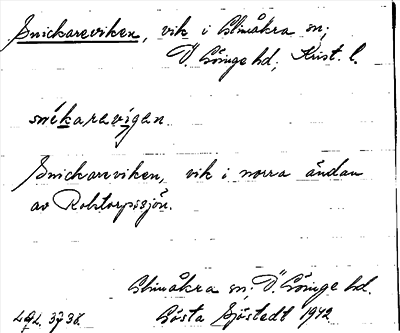 Snickareviken, vik i Glimåkra sn;
Ö. Göinge hd; Krist. l.
snékaravígan
Snickareviken, vik i norra ändan
av Roktorpssjön.
Glimåkra sn; Ö. Göinge hd.
Gösta Sjöstedt 1942